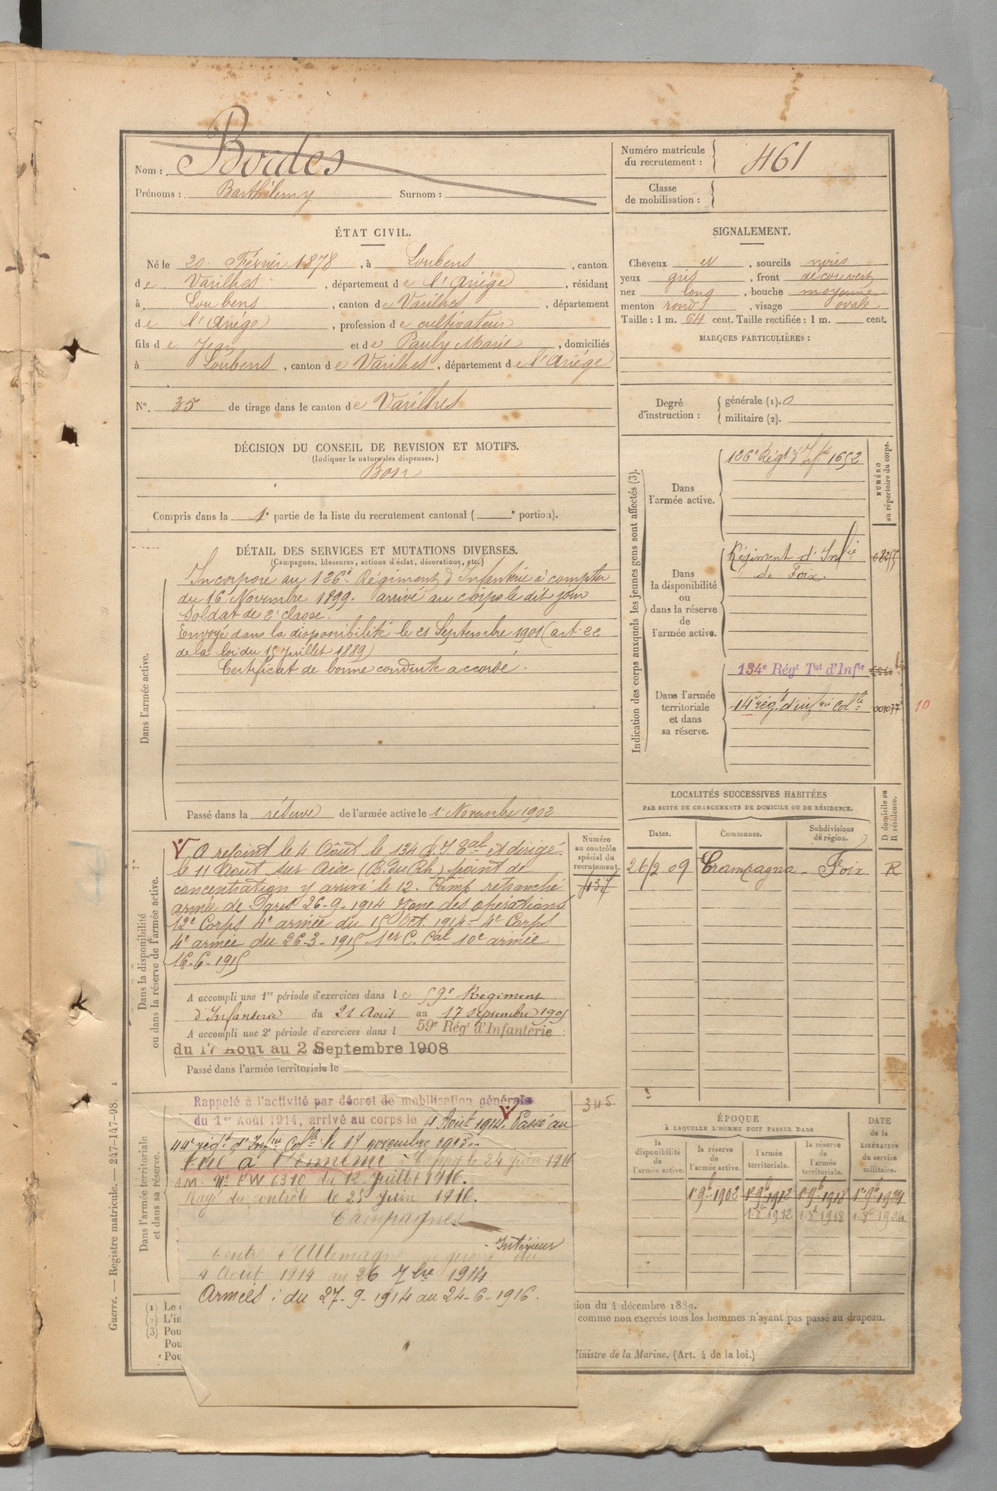 Nom : Bordes
Prénoms : Barthélemy Surnom :
Numéro matricule
du recrutement : 461
Classe
de mobilisation :
ÉTAT CIVIL.
Né le 20 Février 1878, à Loubens, canton
de Varilhes, département de l'Ariège, résidant
à Loubens, canton de Varilhes, département
de l'Ariège, profession de cultivateur
fils de Jean et de Pauly Marie, domiciliés
à Loubens, canton de Varilhes, département de l'Ariège
N° 35 de tirage dans le canton de Varilhes
SIGNALEMENT.
Cheveux et, sourcils noirs
yeux gris, front découvert
nez long, bouche moyenne
menton rond, visage ovale
Taille : 1 m. 64 cent. Taille rectifiée : 1 m. cent.
MARQUES PARTICULIÈRES :
Degré
d'instruction :
générale (1). 0
militaire (2).
DÉCISION DU CONSEIL DE REVISION ET MOTIFS.
(Indiquer la nature des dispenses.)
Bon
Compris dans la 1e partie de la liste du recrutement cantonal ( e portion).
DÉTAIL DES SERVICES ET MUTATIONS DIVERSES.
(Campagnes, blessures, actions d'éclat, décorations, etc.)
Dans l'armée active.
Incorporé au 126e Régiment d'Infanterie à compter
du 16 Novembre 1899. arrivé au corps le dit jour
Soldat de 2e classe.
Envoyé dans la disponibilité le 21 Septembre 1901 (art.
de la loi du 15 Juillet 1889)
Certificat de bonne conduite accordé.
Passé dans la réserve de l'armée active le 1 Novembre 1902
Indication des corps auxquels les jeunes gens sont affectés (3).
NUMÉRO
au répertoire du corps.
Dans
l'armée active.
126e Régt d'Infie 1652
Dans
la disponibilité
ou
dans la réserve
de
l'armée active.
Régiment d'Infie
de Foix
Dans l'armée
territoriale
et dans
sa réserve.
134e Régt Tal d'Infie
régt d'infie Colle 001077
10
LOCALITÉS SUCCESSIVES HABITÉES
PAR SUITE DE CHANGEMENTS DE DOMICILE OU DE RÉSIDENCE.
D domicile ou
R résidence.
Dates. Communes. Subdivisions
de région.
26/2 09 Crampagna Foix R
Dans la disponibilité
ou dans la réserve de l'armée active.
Numéro
au contrôle
spécial du
recrutement.
A rejoint le 4 Août le 134 R.I. Tal et dirigé
le 11 Août sur Aix (B. du Rh) point de
concentration y arrivé le 12. Camp retranché
armée de Paris 26-9-1914 zone des opérations
12e Corps 4e armée du 15 Oct. 1914 - 4e Corps
4e armée du 26-3-1915 1er C. Cal 10e armée
16-6-1915
A accompli une 1re période d'exercices dans le 59e Régiment
d'Infanterie du 21 Août au 17 septembre 1905
A accompli une 2e période d'exercices dans l 59e Rég d'Infanterie
du 17 Aout au 2 Septembre 1908
Passé dans l'armée territoriale le
Dans l'armée territoriale
et dans sa réserve.
345
Rappelé à l'activité par décret de mobilisation générale
du 1er Août 1914, arrivé au corps le 4 Août 1914. Passé au
44e régt d'Infie Colle le 17 novembre 1915
Tué à l'ennemi 24 juin 1916
du 12 juillet 1916.
Rayé du contrôle le 25 juin 1916.
Campagnes
Intérieur
contre l'Allemagne du
4 Août 1914 au 26 7bre 1914
Armées : du 27-9-1914 au 24-6-1916.
ÉPOQUE
À LAQUELLE L'HOMME DOIT PASSER DANS
DATE
de la
LIBÉRATION
du service
militaire.
la
disponibilité
de l'armée active.
la réserve
de
l'armée active.
l'armée
territoriale.
la réserve
de
l'armée
territoriale.
1er 9bre 1902 1er 9bre 1912 1er 9bre 1918 1er 9bre 1924
1912 1918 1924
(1) Le
(2) L'in
(3) Pou
Pou
Pou
tion du 4 décembre 1889.
comme non exercés tous les hommes n'ayant pas passé au drapeau.
Ministre de la Marine. (Art. 4 de la loi.)
Guerre. — Registre matricule. — 247-147-98.